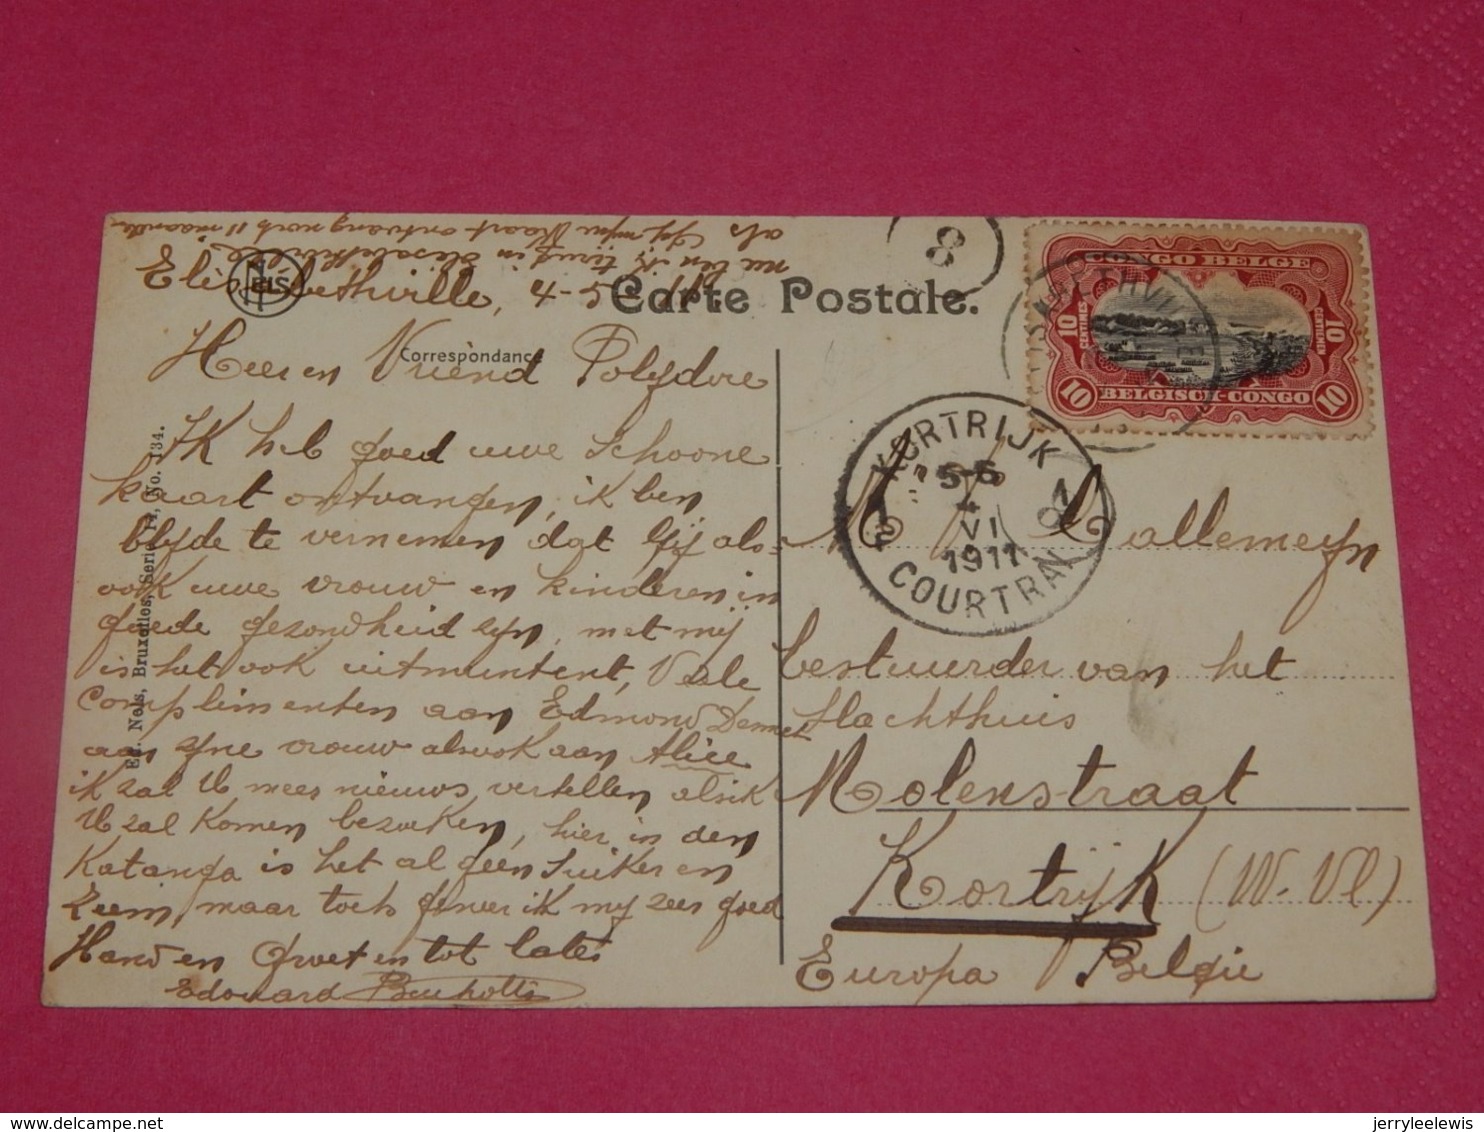 als Gij mijn Kaart ontvang nocth 11 maanden
nu ben ik terug in Elisabethville
NELS
Elisabethville, 4-5-
Carte Postale.
Correspondance
Heer en Vriend Polydore
IK heb goed uwe Schoone
Kaart ontvangen, ik ben
blyde te vernemen dat Gij als-
ook uwe vrouw en kinderen in
goede gezondheid zijn, met mij
is het ook uitmuntent, Veele
Complimenten aan Edmond
aan zyne vrouw alsook aan Alice
ik zal U meer nieuws vertellen als ik
U zal Komen bezoeken, hier in den
Katanga is het al geen Suiker en
Zeem, maar toch geneer ik mij zeer goed
Hand en Groet en tot lates
Edouard
Ed. Nels, Bruxelles, Serie 14, No. 134.
8
CONGO BELGE
10 CENTIMES
10 CENTIMEN
10 BELGISCH-CONGO 10
ELISABETHVILLE
KORTRIJK 1
5-6
4
VI
1911
COURTRAI
Callemeyn
bestuurder van het
Slachthuis
Molenstraat
Kortrijk (W. Vl)
Europa Belgie
jerryleelewis